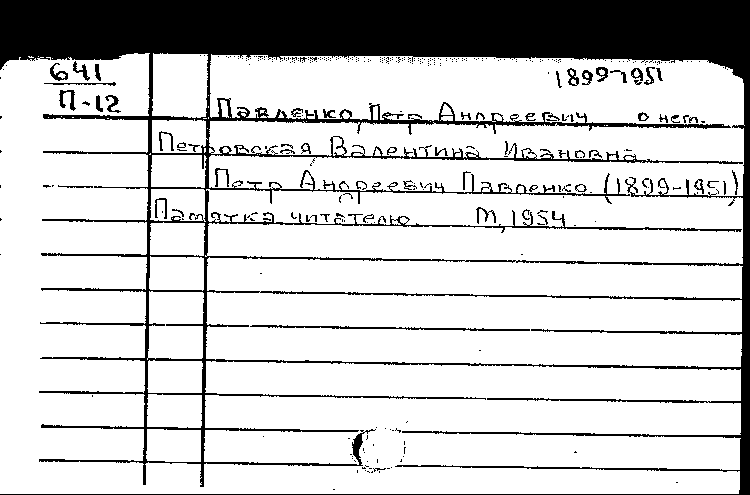 641
П-12
1899-1951
Павленко, Петр Андреевич, о нем.
Петровская, Валентина Ивановна
Петр Андреевич Павленко (1899-1951)
Памятка читателю. М, 1954